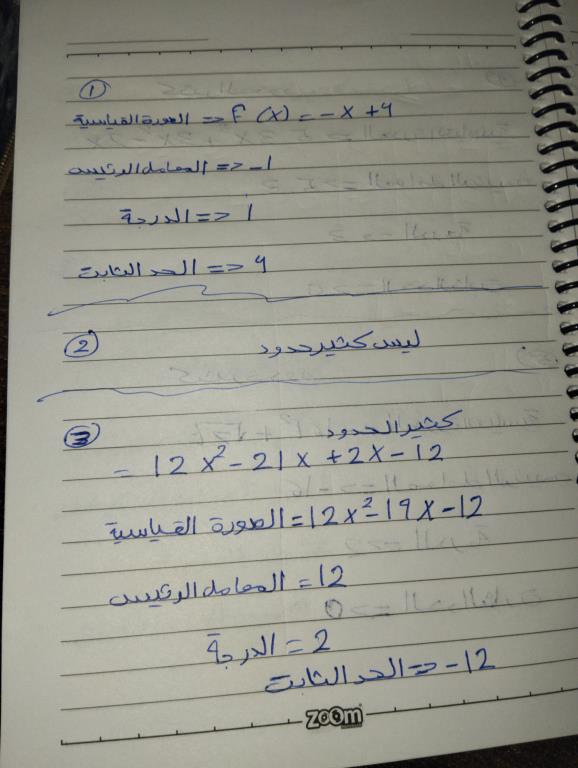 ①
الصورة القياسية <= F (x) = -x + 4
المعامل الرئيسي <= -1
الدرجة <= 1
الحد الثابت <= 4
②
ليس كثير حدود
③
كثير الحدود
= 12x² - 21x + 2x - 12
الصورة القياسية = 12x² - 19x - 12
المعامل الرئيسي = 12
الدرجة = 2
الحد الثابت <= -12
zoom